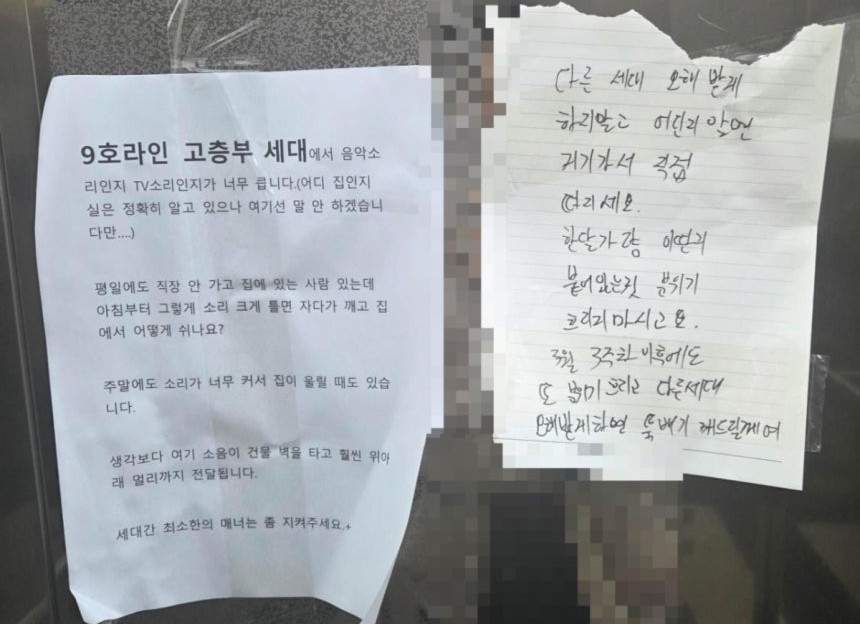 9호라인 고층부 세대에서 음악소
리인지 TV소리인지가 너무 큽니다.(어디 집인지
실은 정확히 알고 있으나 여기선 말 안 하겠습니
다만....)
평일에도 직장 안 가고 집에 있는 사람 있는데
아침부터 그렇게 소리 크게 틀면 자다가 깨고 집
에서 어떻게 쉬나요?
주말에도 소리가 너무 커서 집이 울릴 때도 있습
니다.
생각보다 여기 소음이 건물 벽을 타고 훨씬 위아
래 멀리까지 전달됩니다.
세대간 최소한의 매너는 좀 지켜주세요.
다른 세대 오해 받게
하지말고 어딘지 알면
거기가서 직접
따지세요.
한달가량 이딴거
붙어있는것 분위기
흐리지마시고요.
3월 3주차 이후에도
또 붙이고 다른세대
오해받게하면 뚝배기 깨드릴께여